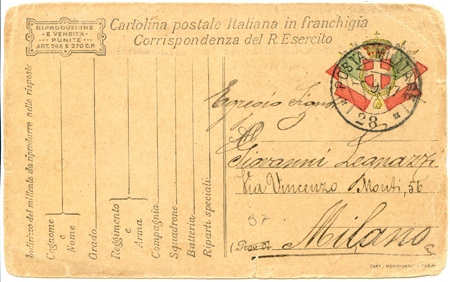 RIPRODUZIONE
E VENDITA
PUNITE
ART. 285 E 270 C.P.
Cartolina postale Italiana in franchigia
Corrispondenza del R. Esercito
POSTA MILITARE
28
Indirizzo del mittente da riprodurre nelle risposte
Cognome
e
Nome
Grado
Reggimento
e
Arma
Compagnia
Squadrone
Batteria
Riparti speciali
Egregio Signor
A
Giovanni Legnazzi
Via Vincenzo Monti, 56
37
Milano